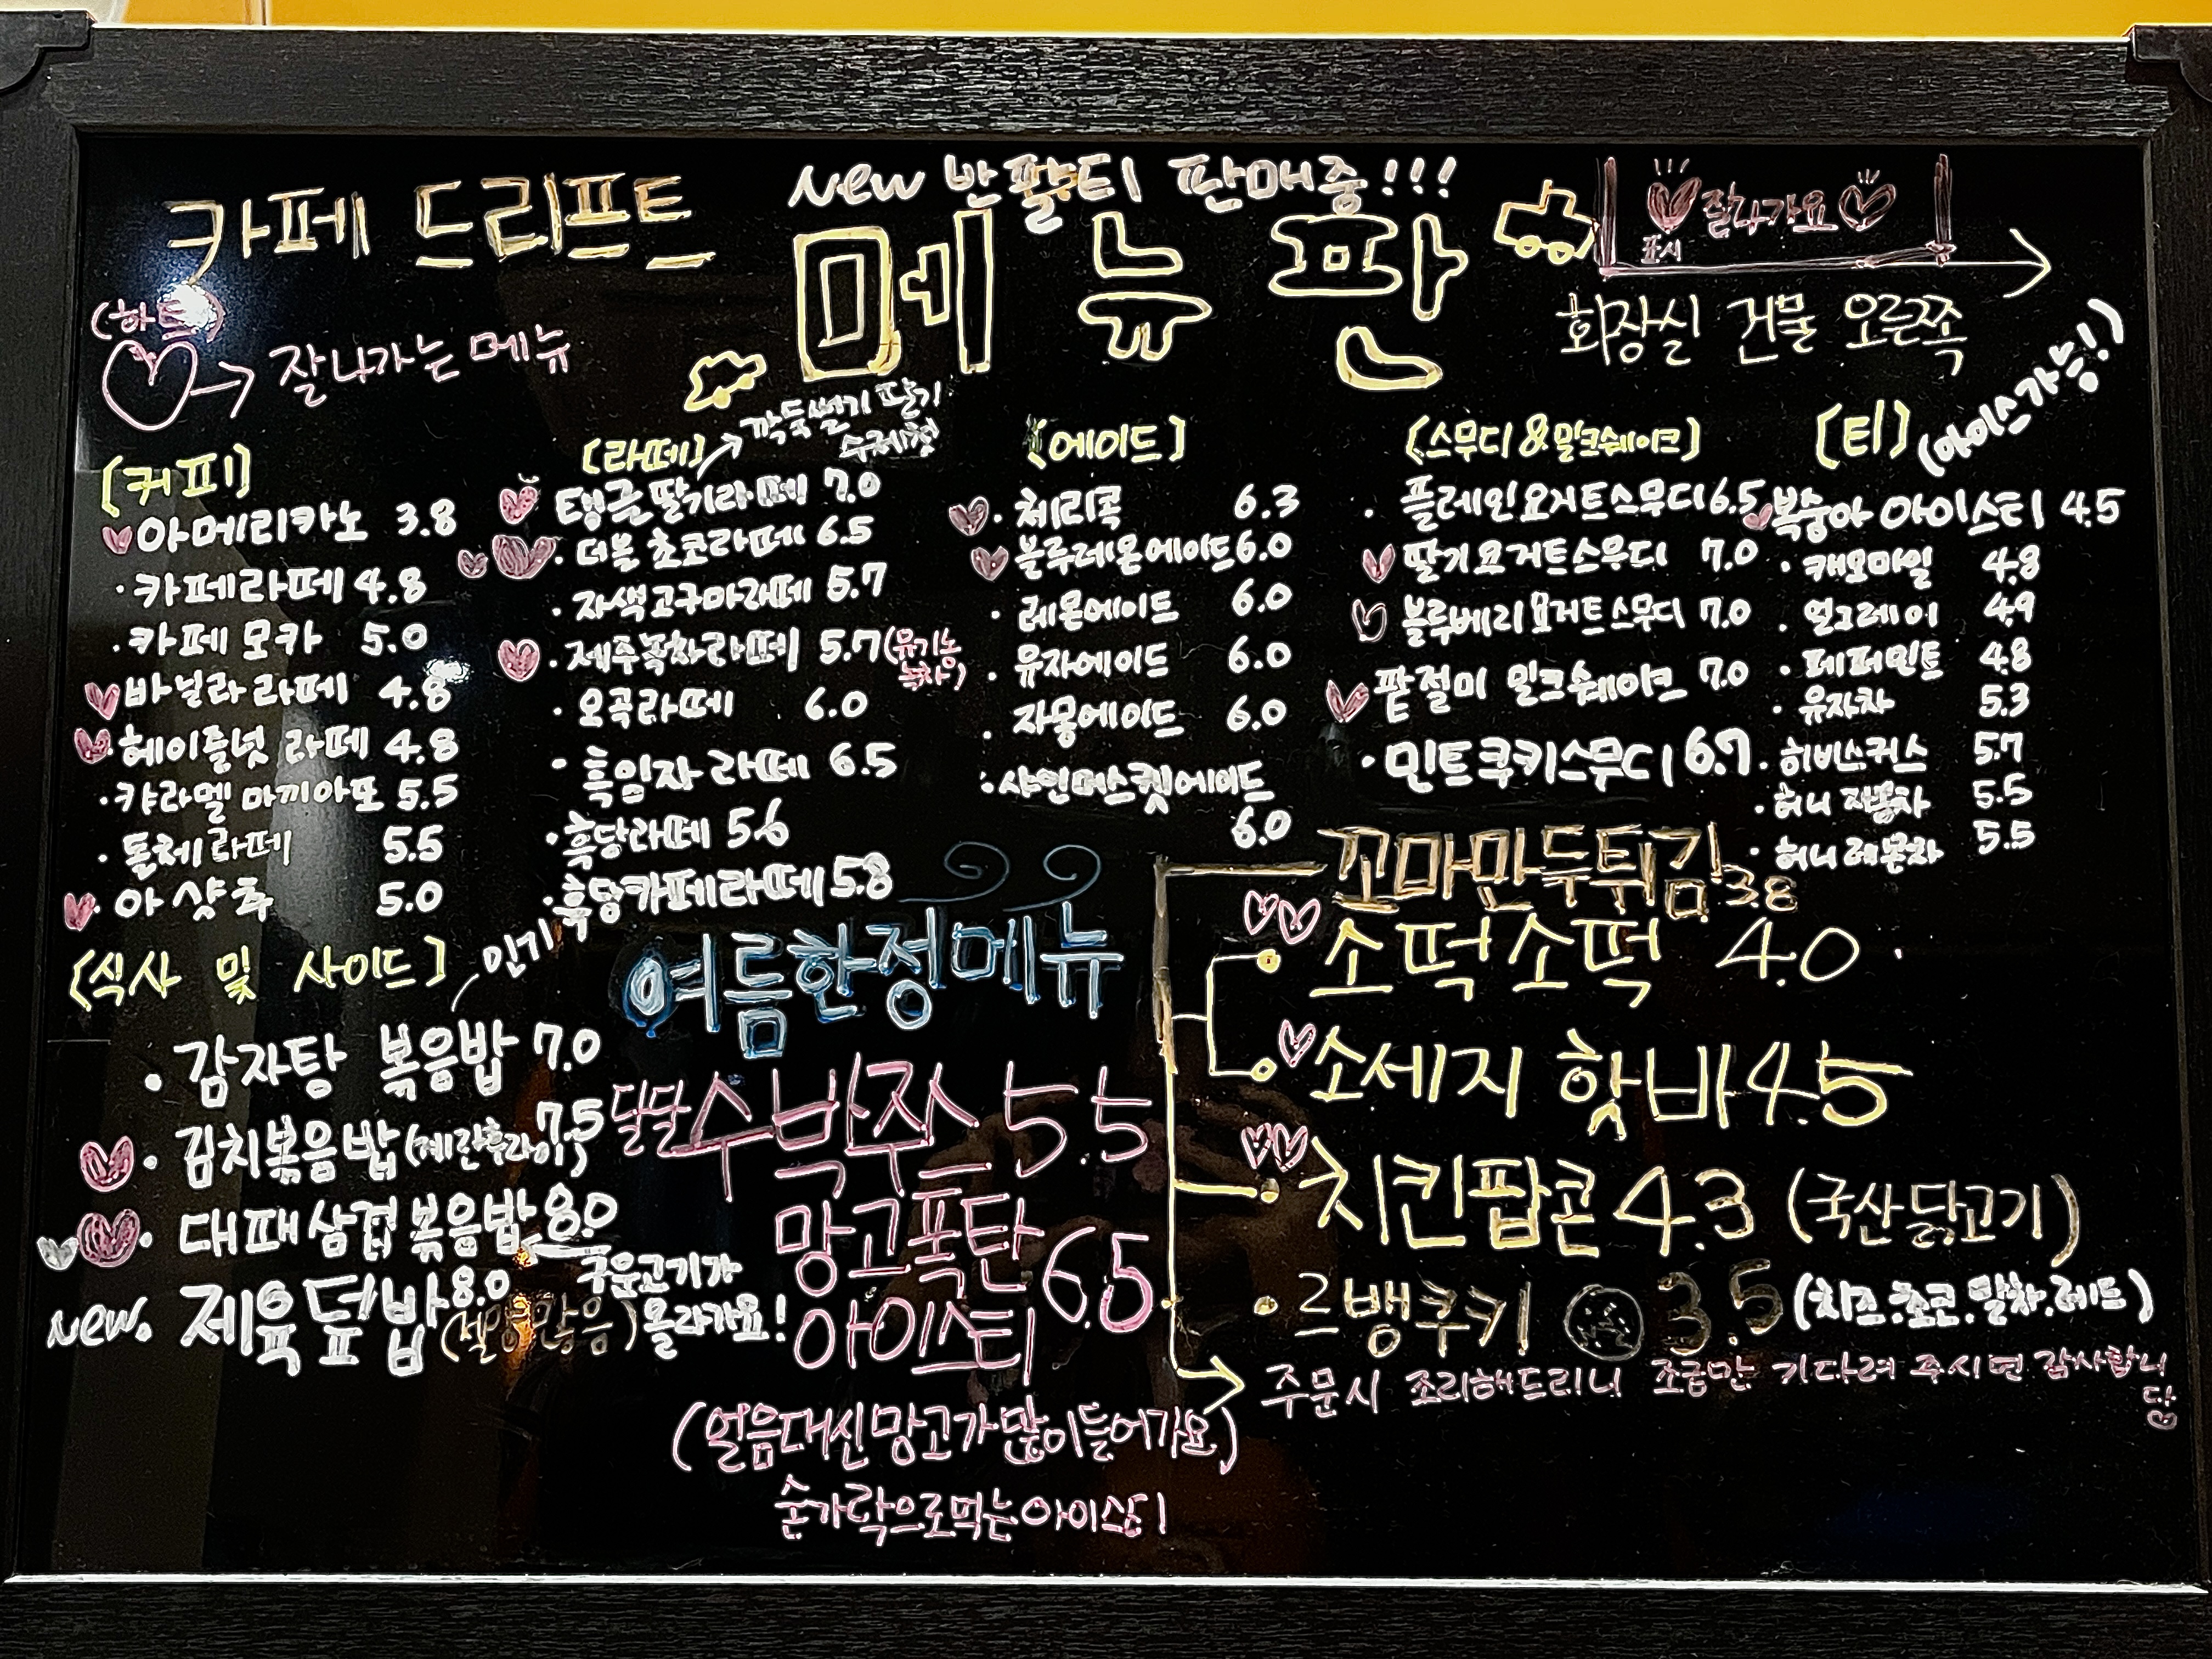 카페 드리프트
New 반팔티 판매중!!!
메뉴판
잘나가요
표시
화장실 건물 오른쪽
(하트)
잘나가는 메뉴
[커피]
아메리카노 3.8
·카페라떼 4.8
·카페 모카 5.0
바닐라 라떼 4.8
헤이즐넛 라떼 4.8
·캬라멜 마끼아또 5.5
·돌체라떼 5.5
아샷추 5.0
[라떼]
깍둑썰기 딸기
수제청
탱글딸기라떼 7.0
·더블 초코라떼 6.5
·자색고구마라떼 5.7
·제주녹차라떼 5.7 (유기농
녹차)
·오곡라떼 6.0
·흑임자 라떼 6.5
·흑당라떼 5.6
·흑당카페라떼 5.8
[에이드]
·체리콕 6.3
·블루레몬에이드 6.0
·레몬에이드 6.0
·유자에이드 6.0
·자몽에이드 6.0
·샤인머스캣에이드
6.0
(스무디&밀크쉐이크)
·플레인요거트스무디 6.5
딸기요거트스무디 7.0
블루베리요거트스무디 7.0
팥절미 밀크쉐이크 7.0
·민트쿠키스무디 6.7
[티]
(아이스가능!)
복숭아 아이스티 4.5
·캐모마일 4.8
·얼그레이 4.9
·페퍼민트 4.8
·유자차 5.3
·히비스커스 5.7
·허니 자몽차 5.5
·허니레몬차 5.5
[식사 및 사이드]
인기
·감자탕 볶음밥 7.0
·김치볶음밥 (계란후라이) 7.5
·대패삼겹볶음밥 8.0
구운고기가
올라가요!
New. 제육덮밥 8.0
(설명많음)
여름한정메뉴
달달 수박주스 5.5
망고폭탄
아이스티 6.5
(얼음대신망고가많이들어가요)
숟가락으로먹는아이상!
꼬마만두튀김 3.8
소떡소떡 4.0
소세지 핫바 4.5
치킨팝콘 4.3 (국산닭고기)
르뱅쿠키 3.5 (치즈.초코.말차.레드)
주문시 조리해드리니 조금만 기다려 주시면 감사합니
당